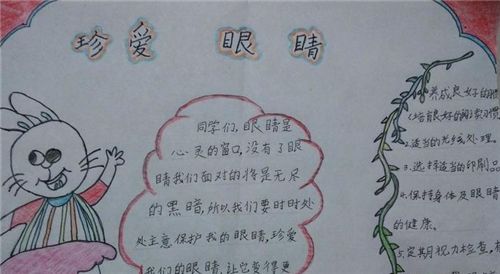 珍爱 眼睛
同学们，眼睛是
心灵的窗口，没有了眼
睛我们面对的将是无尽
的黑暗，所以我们要时时处
处注意保护我的眼睛，珍爱
我们的眼睛，让它变得更
养成良好的
(培育良好的阅读习惯
2.适当的光线处理。
3.选择适当的印刷品
4.保持身体及眼睛
的健康。
5.定期视力检查，